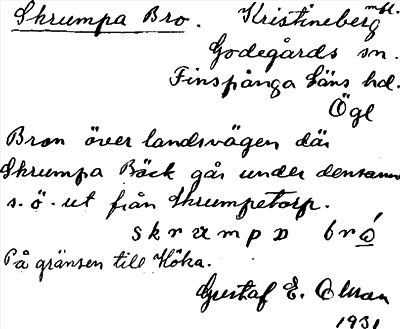 Skrumpa Bro. Kristineberg mtl.
Godegårds sn.
Finspånga läns hd.
Ögl
Bron över landsvägen där
Skrumpa Bäck går under densamma
s.ö. ut från Skrumpetorp.
skrumpa bró
På gränsen till Köka.
Gustaf E. Olsson
1931